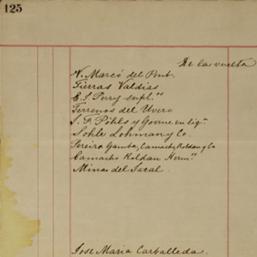 125
De la vuelta
N. Marcó del Pont
Tierras Valdias
E. S. Perry
Terrenos del Uvero
S. F. Pohls y Govne en liqn
Sohle Lohman y Co
Pereira Gamba, Camacho Roldan y Co
Camacho Roldan Hermos
Minas del Saral
Jose Maria Carballeda.